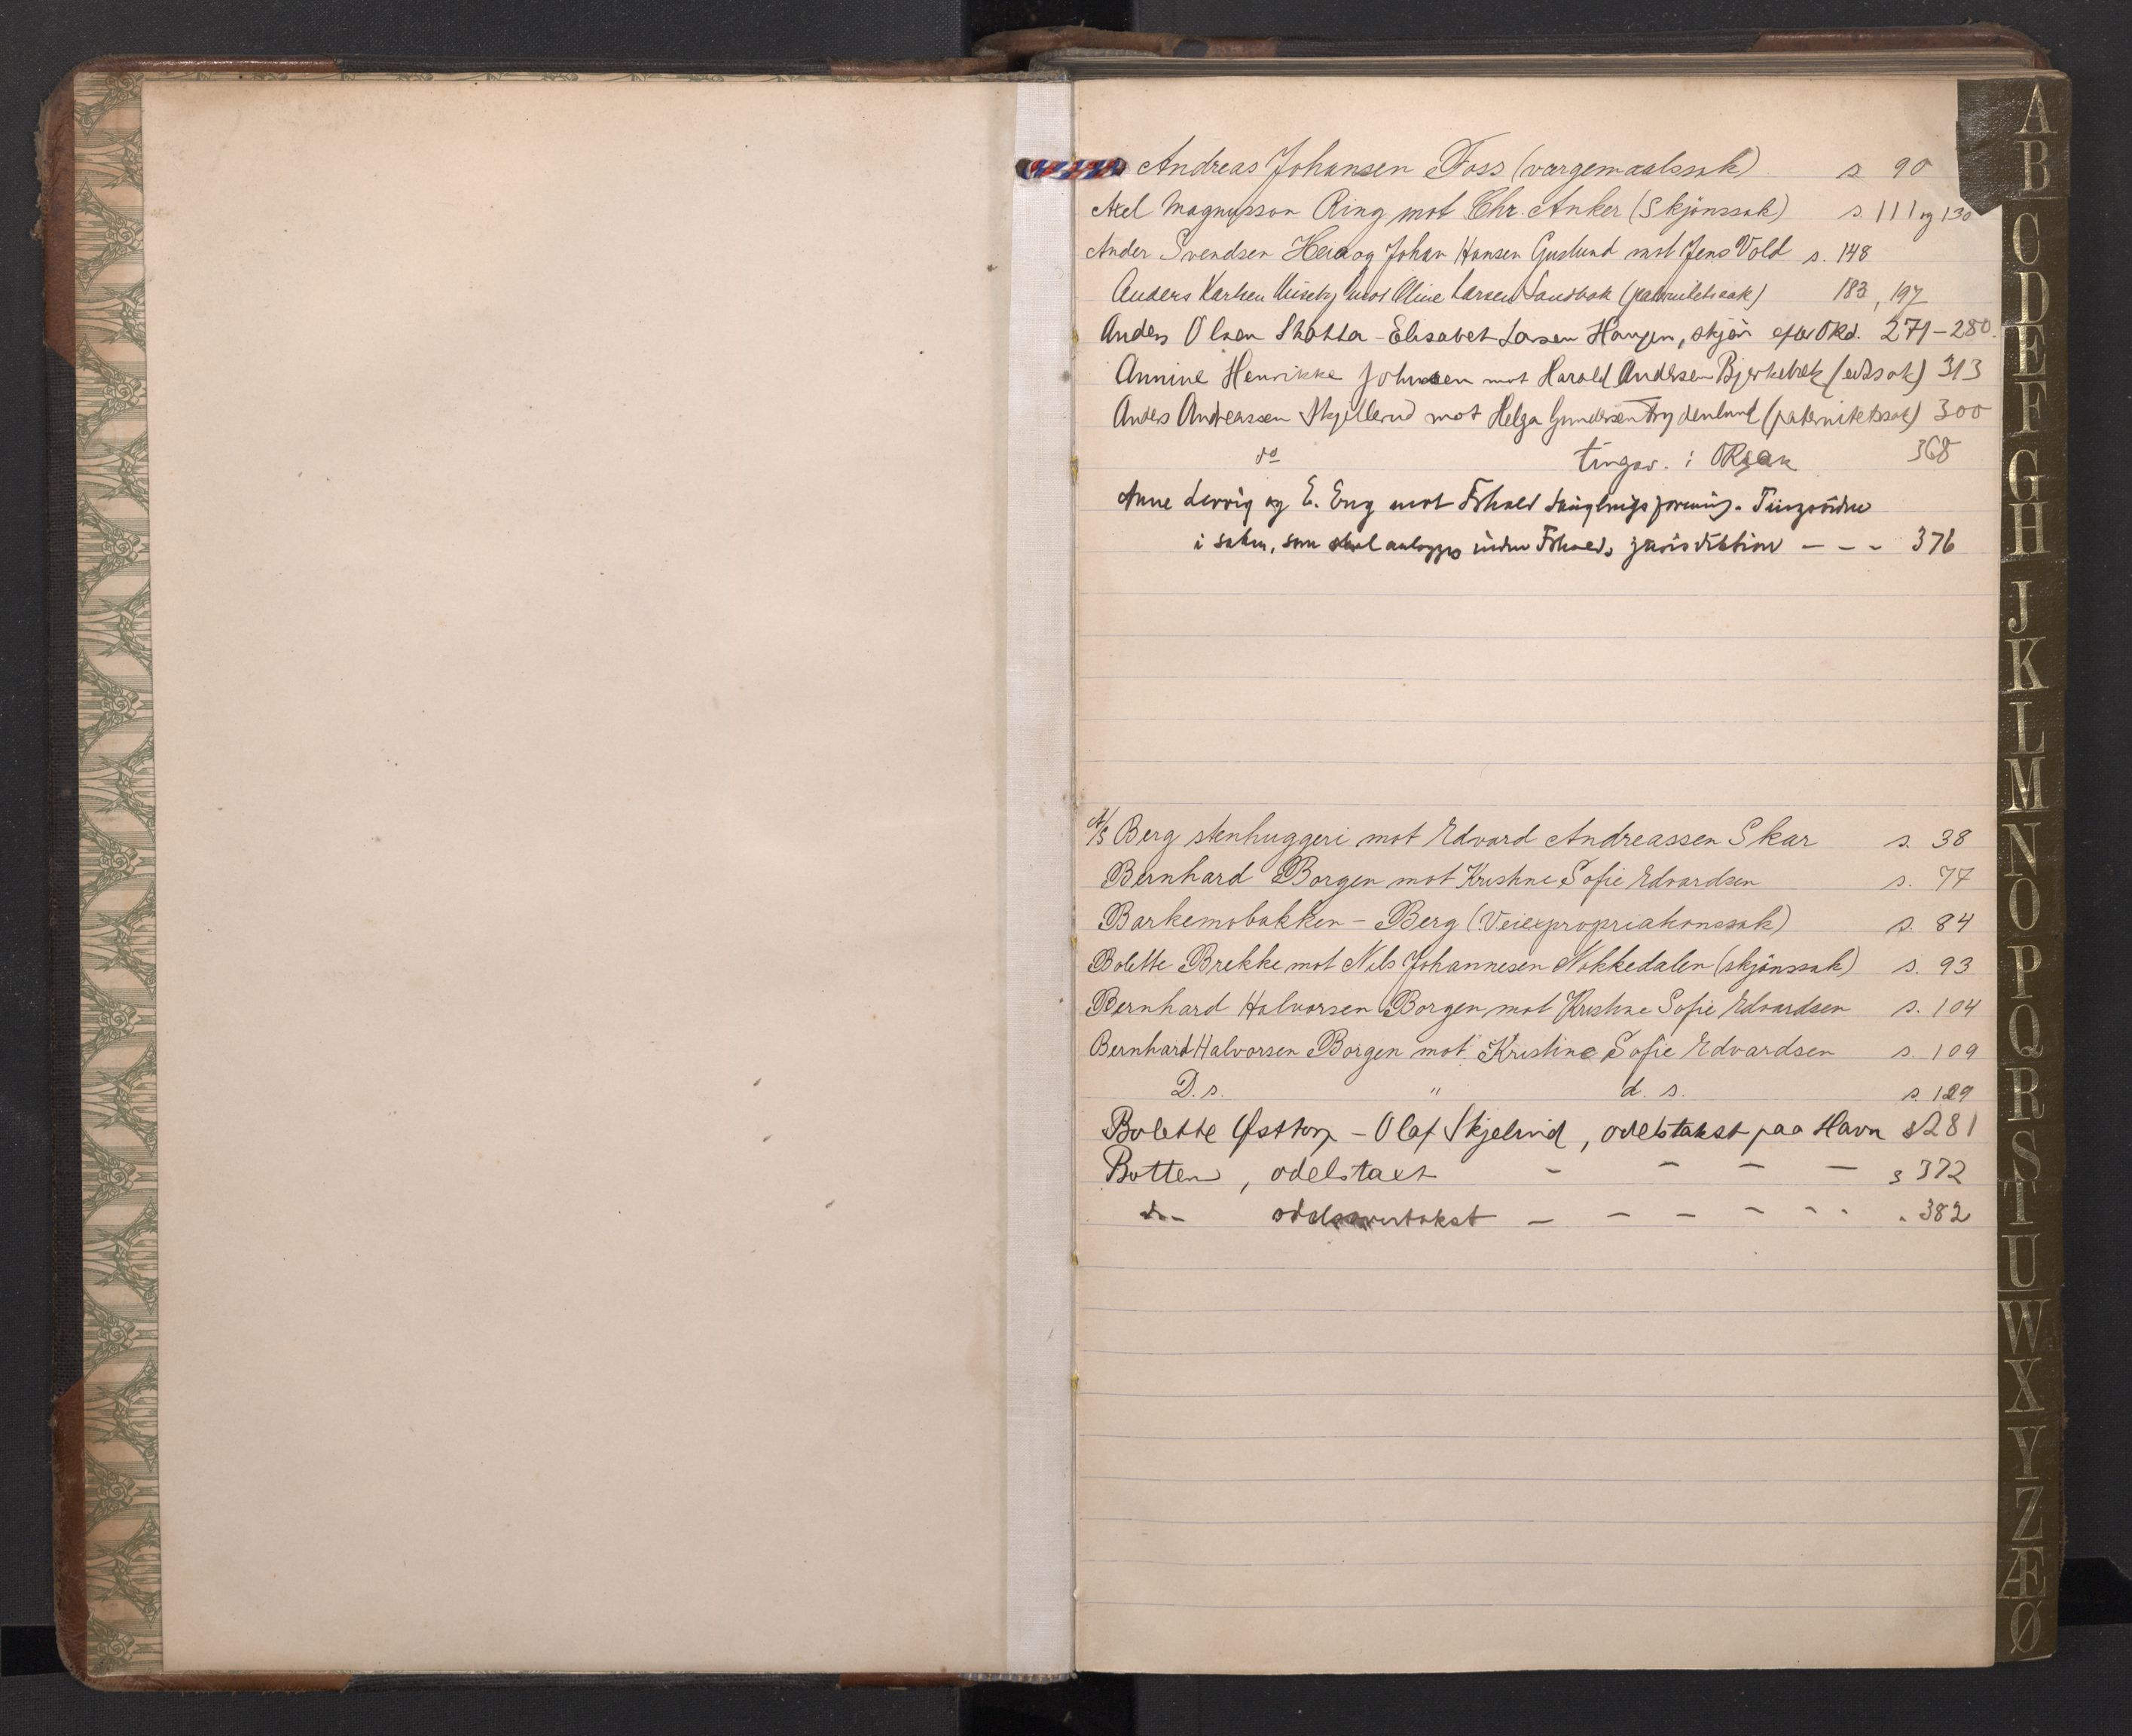 Andreas Johansen Foss (vergemaalssak) s 90
Axel Magnusson Ring mot Chr. Anker (Skjönssak) s. 111 og 130
Ander Svendsen Heia og Johan Hansen Guslund mot Jens Vold s. 148
Anders Karlsen Huseby mot Oline Larsen Sandbak (paternitetssak) 183, 197
Anders Olsen Skotta - Elisabet Larsen Haugen, skjön efter Okd. 271-280.
Annine Henrikke Johnsen mot Harald Andersen Bjerkebæk (edssak) 313
Anders Andreassen Skjellerud mot Helga Gundersen Frydenlund (paternitetssak) 300
do tingsv. i ORsak 368
Anne Lervig og E. Eng mot Fthald forening. Tingsvidne
i saken, som skal anlægges under Fthalds jurisdiktion - - - 376
A/S Berg stenhuggeri mot Edvard Andreassen Skar s. 38
Bernhard Borgen mot Kristine Sofie Edvardsen s. 77
Barkemobakken - Berg (Veiexpropriationssak) s. 84
Bolette Brekke mot Nils Johannesen Nokkedalen (skjönssak) s. 93
Bernhard Halvorsen Borgen mot Kristine Sofie Edvardsen s. 104
Bernhard Halvorsen Borgen mot Kristine Sofie Edvardsen s. 109
D. s. " d. s. s. 129
Bolette Østtorp - Olaf Skjelrud, odelstakst paa Havn s 281
Botten, odelstaxt - - - - s 372
do - odelsovertakst - - - - - - - " 382
A
B
C
D
E
F
G
H
J
K
L
M
N
O
P
Q
R
S
T
U
W
X
Y
Z
Æ
Ø